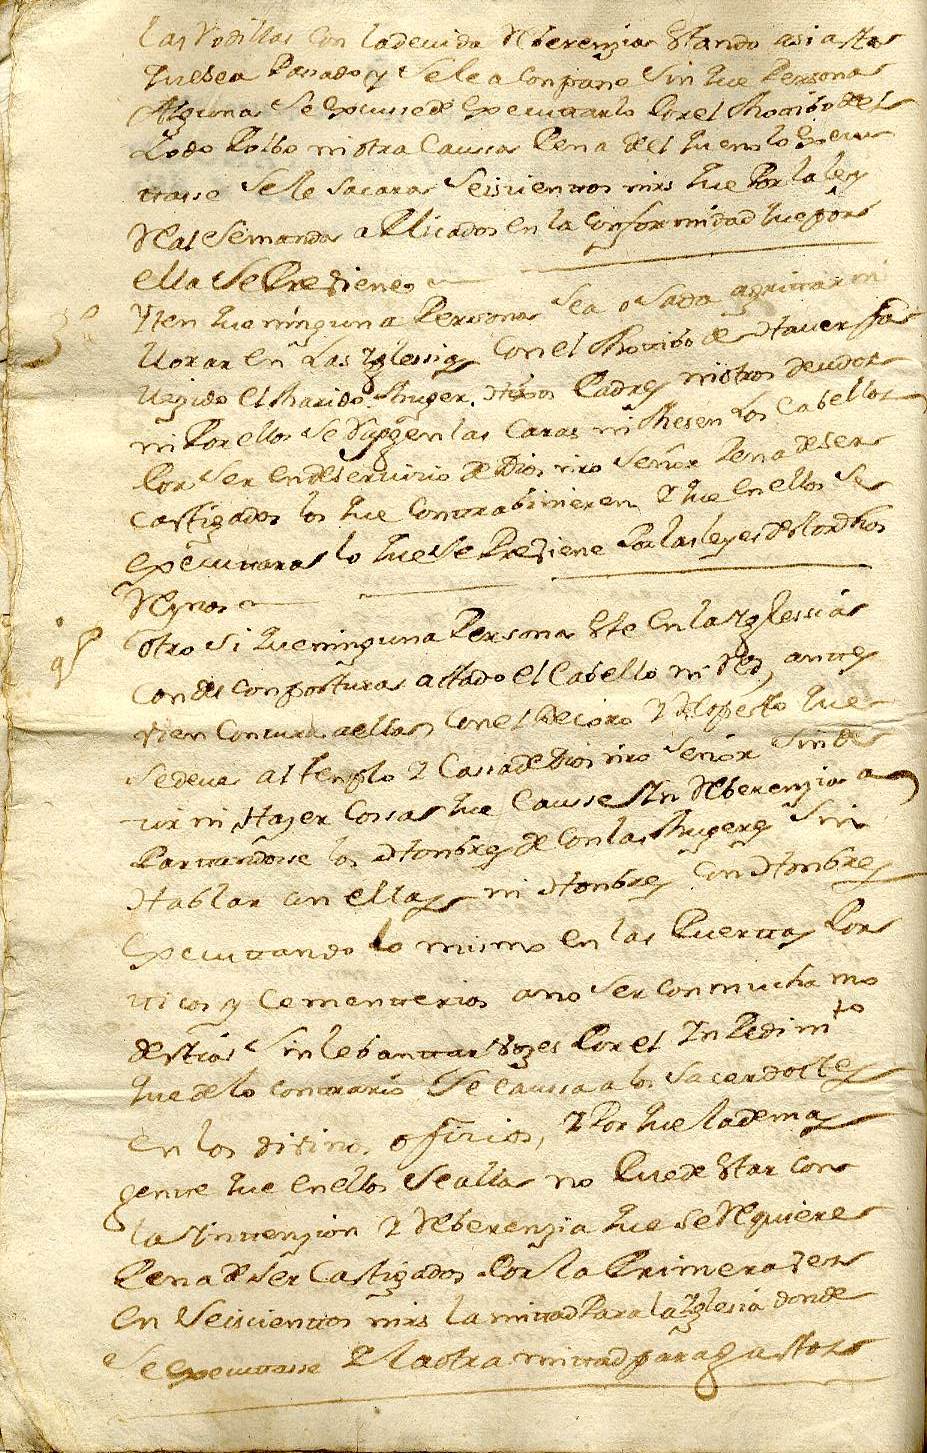 las Rodillas con la devida Reberenzia estando asi asta
que sea Pasado y se le aconpane sin que Persona
Alguna se escusse de executtarlo Por el Motibo de el
Lodo Polbo ni otra Caussa Pena de el que no lo Execu
ttasse se le sacaran seiscienttos mrs que Por la ley
Real se manda aplicados en la Conformidad que por
ella se Previene
3º
Ytten que ninguna Persona sea osada a grittar ni
llorar en las Yglessias con el Motibo de Haver fa
llezido el Marido Muger, Hijos Padres ni otros deudos
ni Por ellos se Rasgen las Caras ni Mesen los Cabellos
Por ser en deservicio de Dios nro Señor Pena de ser
Castigados los que Conttrabinieren y que en ellos se
Executtara lo que se Previene Por las leyes destos dhos
Reynos
4º
Otro si que ninguna Persona este en la Yglessia
con descomposturas attado el Cabello ni Red, anttes
vien Concurra a ellas con el decoro y Respecto que
se deve al templo y Cassa de Dios nro Señor sin de
cir ni Hazer Cossas que Causse Yn Reberenzia a
Parttandosse los Honbres de con las Mugeres sin
Hablar con ellas ni Honbres con Honbres
Executtando lo mismo en las Puerttas Por
ticos y Cementterios a no ser con mucha mo
destia sin lebanttar Vozes Por el YnPedimto
que de lo conttrario se caussa a los sacerdottes
en los divinos oficios, y Por que la demas
gentte que en ellos se alla no Puede estar con
la Yntenzion y Reberenzia que se Requiere
Pena de ser Castigados Por la Primera vez
en Seiscienttos mrs la mittad Para la Yglesia donde
se Executtasse y la otra mittad para gastos